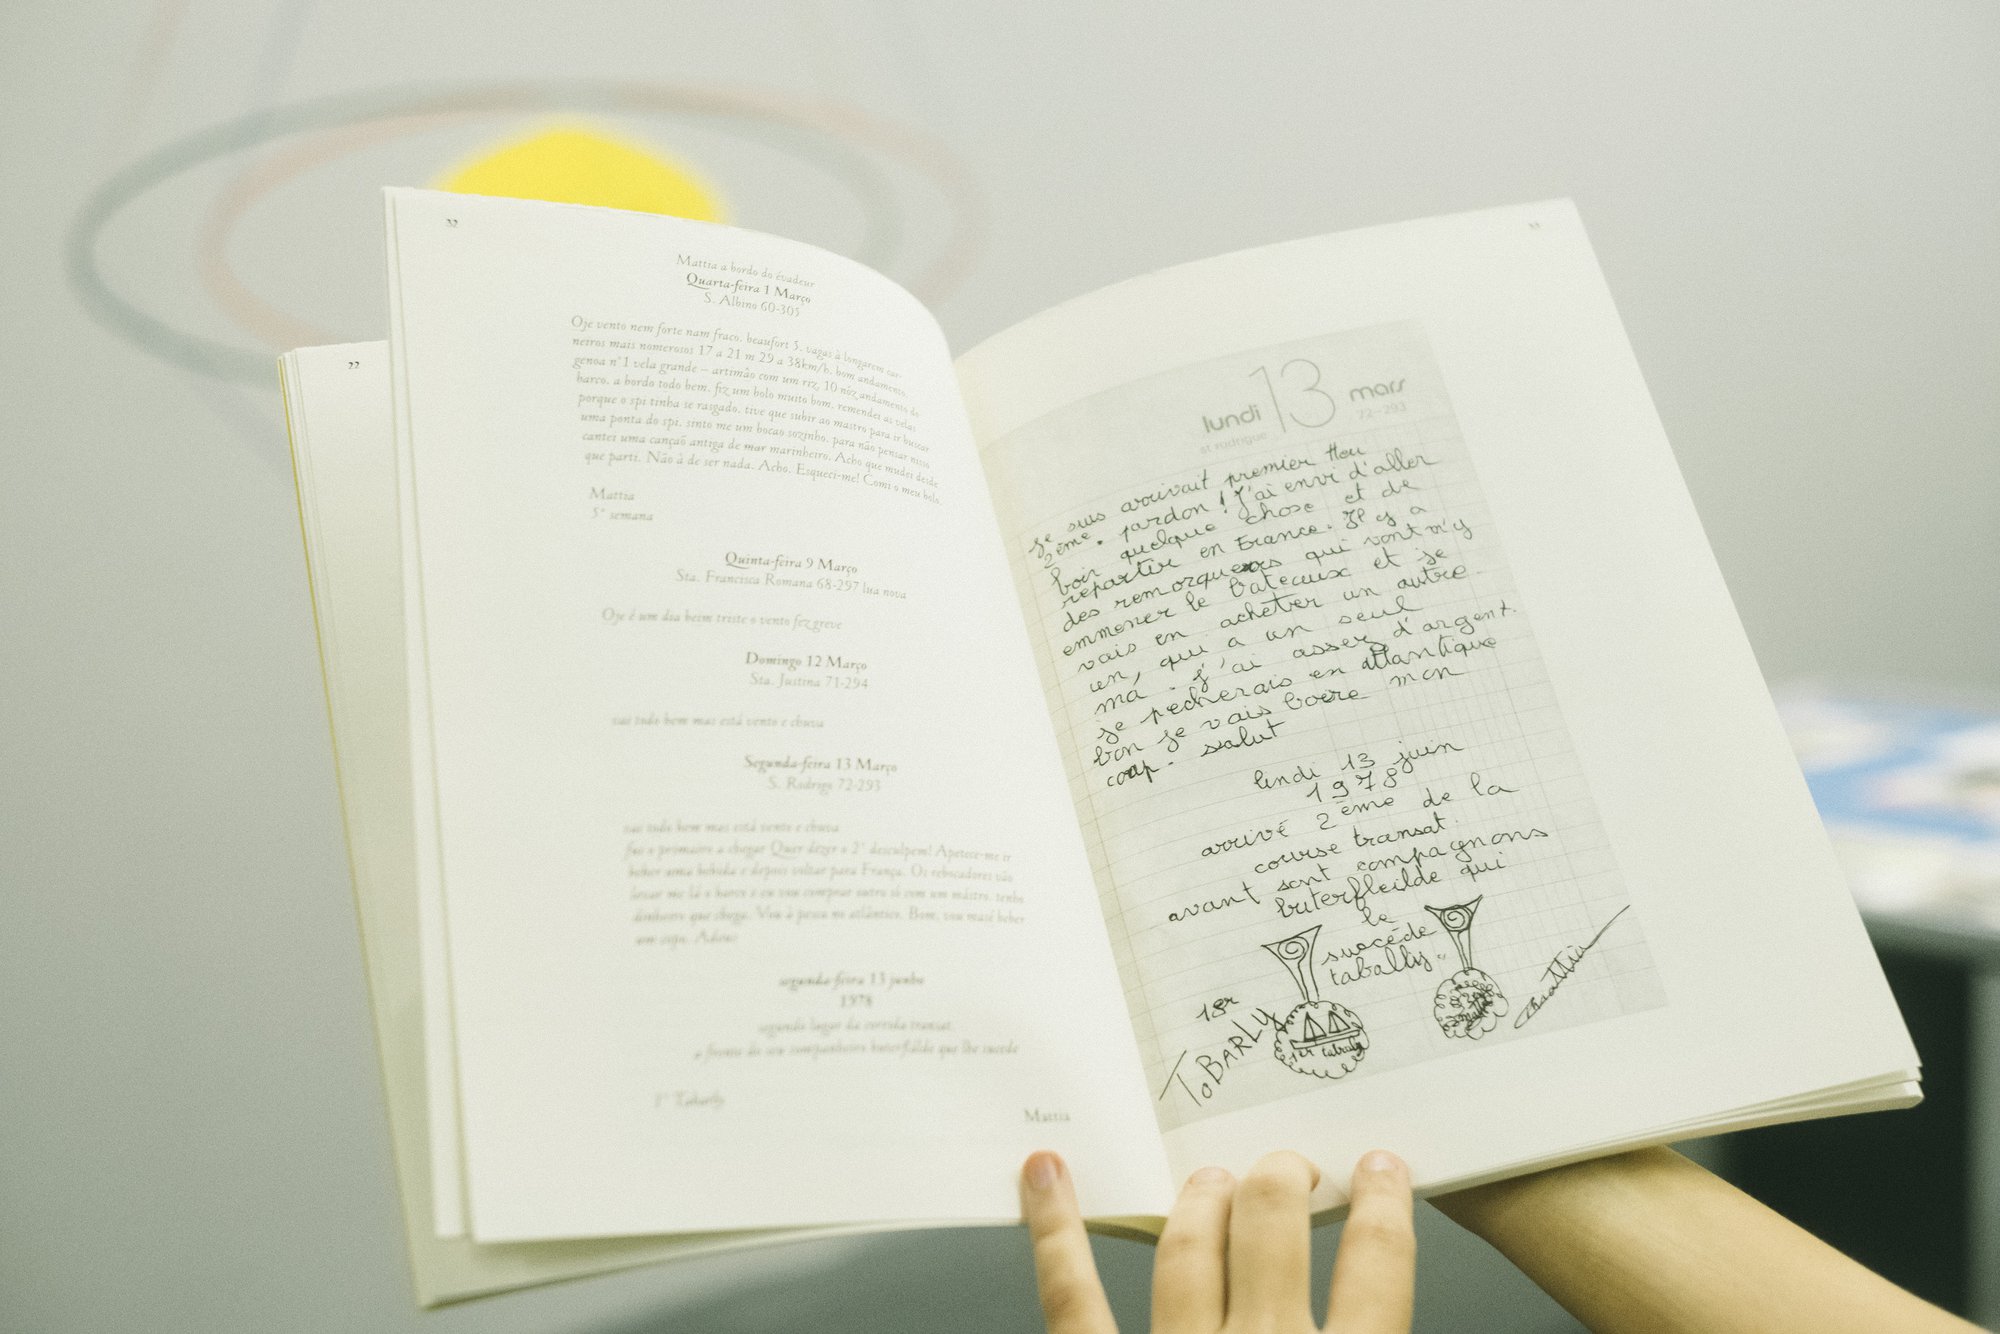 32
Mattia a bordo do évadeur
Quarta-feira 1 Março
S. Albino 60-305
Oje vento nem forte nam fraco. beaufort 5. vagas à longarem car-
neiros mais nomerosos 17 a 21 m 29 a 38km/h. bom andamento.
genoa n°1 vela grande – artimão com um riz, 10 nóz andamento do
barco. a bordo todo bem. fiz um bolo muito bom. remendei as velas
porque o spi tinha se rasgado. tive que subir ao mastro para ir buscar
uma ponta do spi. sinto me um bocao sozinho. para não pensar nisso
cantei uma cançaõ antiga de mar marinheiro. Acho que mudei desde
que parti. Não à de ser nada. Acho. Esqueci-me! Comi o meu bolo.
Mattia
5° semana
Quinta-feira 9 Março
Sta. Francisca Romana 68-297 lua nova
Oje é um dia beim triste o vento fez greve
Domingo 12 Março
Sta. Justina 71-294
vai tudo bem mas está vento e chuva
Segunda-feira 13 Março
S. Rodrigo 72-293
vai tudo bem mas está vento e chuva
fui o promeiro a chegar Quer dezer o 2° desculpem! Apetece-me ir
beber uma bebida e depois voltar para França. Os rebocadores vão
levar me lá o barco e eu vou comprar outro só com um mastro. tenho
dinheiro que chega. Vou à pesca no atlântico. Bom, vou masé beber
um copo. Adeus
segunda-feira 13 junho
1978
segundo lugar da corrida transat.
a frente do seu companheiro buterfläilde que lhe sucede
1° Tabarly
Mattia
22
lundi 13 mars
st rodrigue 72-293
Je suis arrivait premier Heu
2ème. pardon! J'ai envi d'aller
boir quelque chose et de
repartir en France. Il y a
des remorqueurs qui vont m'y
emmener le bateaux et je
vais en acheter un autre.
un, qui a un seul
ma. J'ai assez d'argent.
je pecherais en atlantique
bon je vais boire mon
coup. salut
lindi 13 juin
1978
arrivé 2ème de la
course transat.
avant sont compagnons
buterfleilde qui
le
succède
tabally.
1er
ToBARLY
1er tabally
Mattia